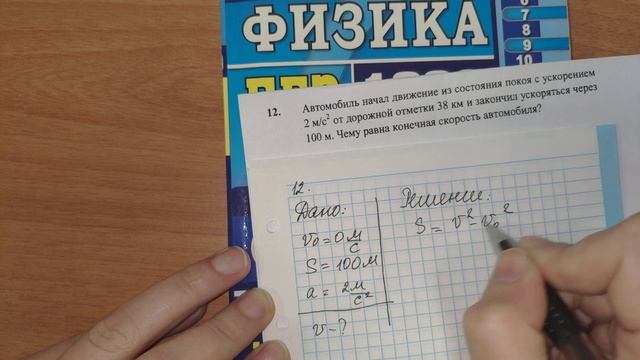 ФИЗИКА
6
7
8
9
10
12. Автомобиль начал движение из состояния покоя с ускорением
2 м/с² от дорожной отметки 38 км и закончил ускоряться через
100 м. Чему равна конечная скорость автомобиля?
12.
Дано:
v₀ = 0 м/с
S = 100 м
a = 2м/с²
v - ?
Решение:
S = v² - v₀²